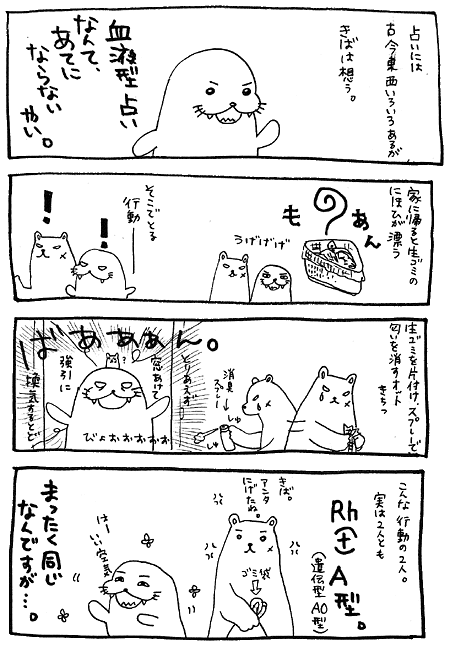 占いには
古今東西いろいろあるが
きばは想う。
血液型占い
なんて、
あてに
ならない
やい。
家に帰ると生ゴミの
においが漂う
もあ〜ん
うげげげげ
そこでとる
行動
！
！
生ゴミを片付け、スプレーで
匂いを消すオット
きちっ
消臭
スプレー
しゅ
しゅ
とりあえず
窓あけて
？
強引に
換気するヒト
ばあぁぁん。
びょおぉぉぉぉぉ
こんな行動の2人。
実は2人とも
Rh(+)A型。
(遺伝型AO型)
きば。
アンタ
にげたね。
ゴミ袋
はーいい空気
まったく同じ
なんですが…。